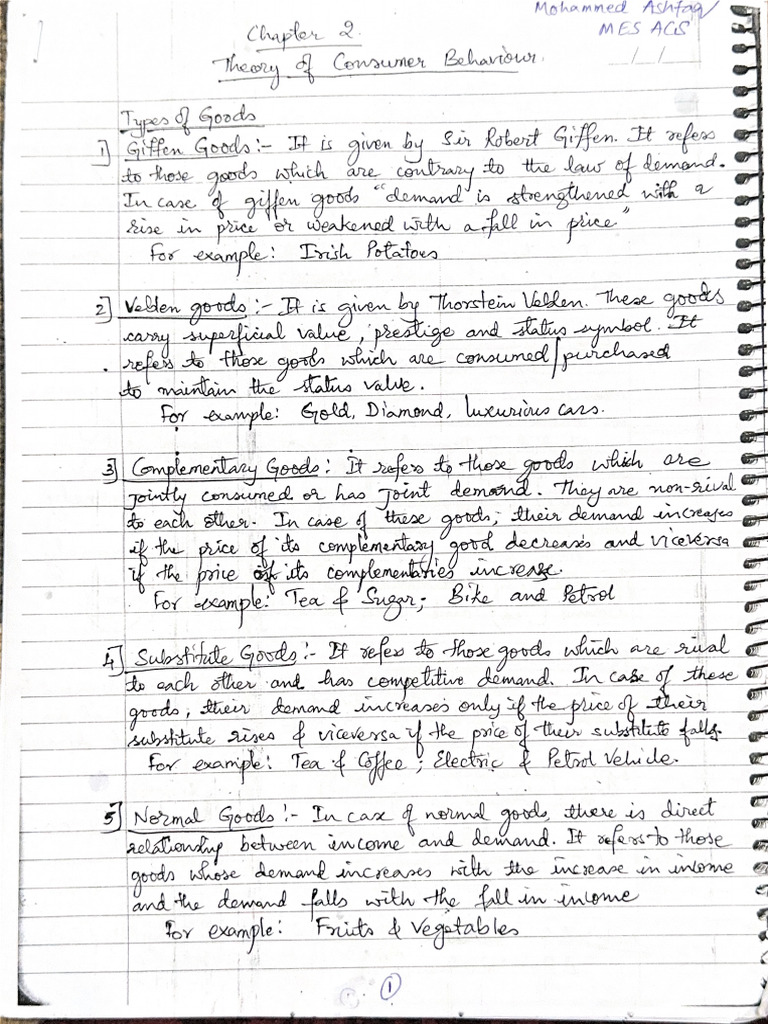 Mohammed Ashfaq
MES ACS
Chapter 2.
Theory of Consumer Behaviour.
Types of Goods
1] Giffen Goods:- It is given by Sir Robert Giffen. It refers
to those goods which are contrary to the law of demand.
In case of giffen goods "demand is strengthened with a
rise in price or weakened with a fall in price"
For example: Irish Potatoes
2] Veblen goods:- It is given by Thorstein Veblen. These goods
carry superficial value, prestige and status symbol. It
refers to those goods which are consumed/purchased
to maintain the status value.
For example: Gold, Diamond, luxurious cars.
3] Complementary Goods: It refers to those goods which are
jointly consumed or has joint demand. They are non-rival
to each other. In case of these goods, their demand increases
if the price of its complementary good decreases and viceversa
if the price of its complementaries increase.
For example: Tea & Sugar; Bike and Petrol
4] Substitute Goods:- It refers to those goods which are rival
to each other and has competitive demand. In case of these
goods, their demand increases only if the price of their
substitute rises & viceversa if the price of their substitute falls.
For example: Tea & Coffee; Electric & Petrol Vehicle.
5] Normal Goods:- In case of normal goods, there is direct
relationship between income and demand. It refers to those
goods whose demand increases with the increase in income
and the demand falls with the fall in income
For example: Fruits & Vegetables
1